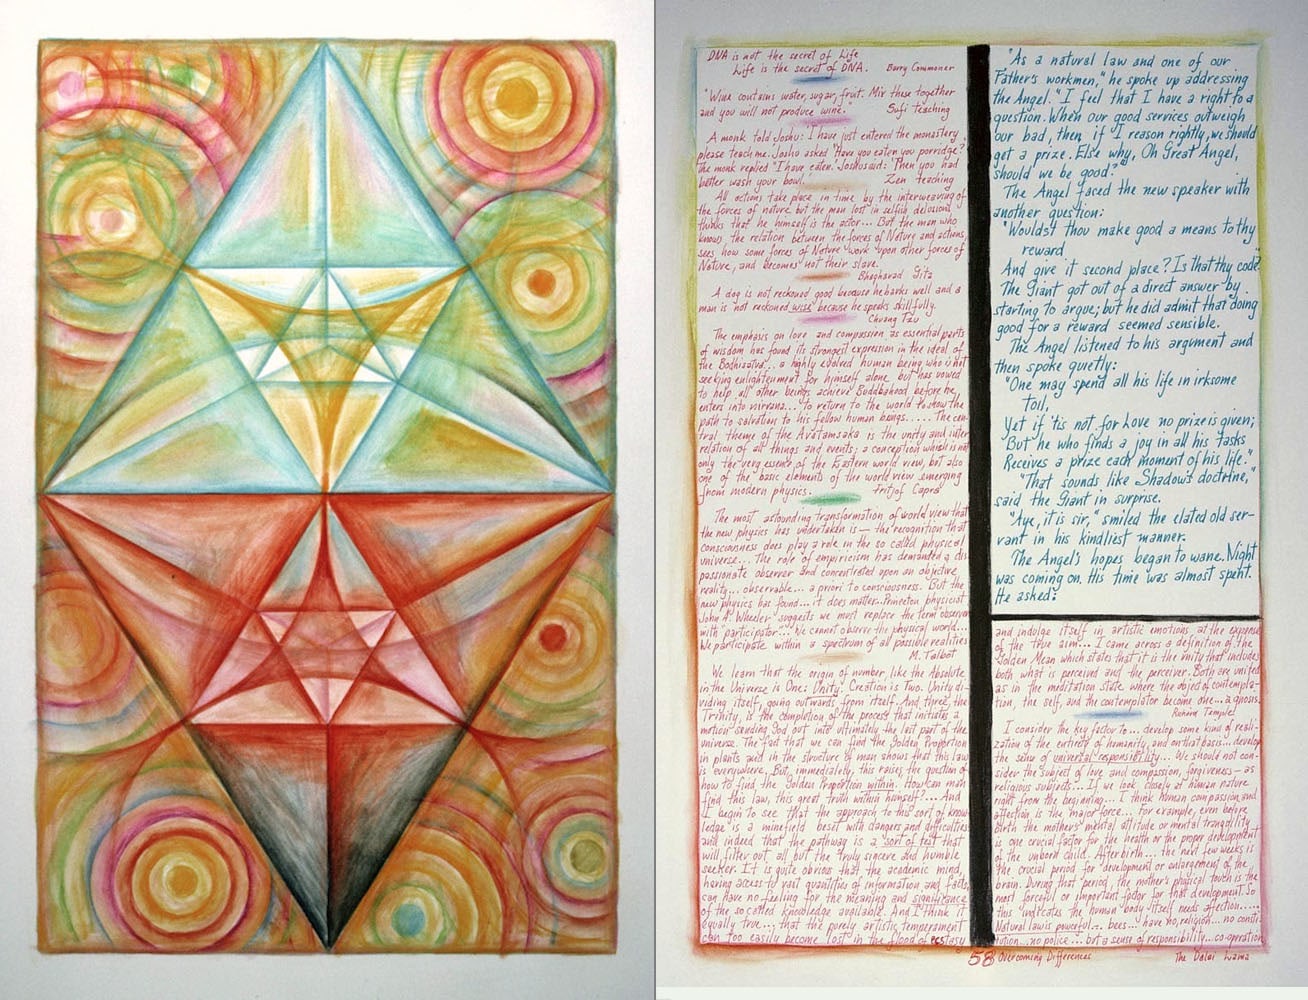 DNA is not the secret of Life
Life is the secret of DNA. Barry Commoner
"Wine contains water, sugar, fruit. Mix these together
and you will not produce wine." Sufi teaching
A monk told Joshu: I have just entered the monastery
please teach me. Joshu asked "Have you eaten you porridge?"
The monk replied "I have eaten." Joshu said: "Then you had
better wash your bowl." Zen teaching
All actions take place in time by the interweaving of
the forces of nature but the man lost in selfish delusion
thinks that he himself is the actor... But the man who
knows the relation between the forces of Nature and actions,
sees how some forces of Nature work upon other forces of
Nature, and becomes not their slave.
Bhagharad Gita
A dog is not reckoned good because he barks well and a
man is not reckoned wise because he speaks skillfully.
Chuang Tzu
The emphasis on love and compassion as essential parts
of wisdom has found its strongest expression in the ideal of
the Bodhisatva... a highly evolved human being who is not
seeking enlightenment for himself alone but has vowed
to help all other beings achieve Buddhahood before he
enters into nirvana... To return to the world to show the
path to salvation to his fellow human beings..... The cen-
tral theme of the Avatamsaka is the unity and inter
relation of all things and events; a conception which is not
only the very essence of the Eastern world view, but also
one of the basic elements of the world view emerging
from modern physics. Fritjof Capra
The most astounding transformation of world view that
the new physics has undertaken is — the recognition that
consciousness does play a role in the so called physical
universe... The role of empiricism has demanded a dis
passionate observer and concentrated upon an objective
reality... observable... a priori to consciousness. But the
new physics has found... it does matter... Princeton physicist
John A. Wheeler suggests we must replace the term observer
with "participator"... We cannot observe the physical world...
We participate within a spectrum of all possible realities
M. Talbot
We learn that the origin of number, like the Absolute
in the Universe is One: Unity. Creation is Two. Unity di-
viding itself, going outwards from itself. And three, the
Trinity, is the completion of the process that initiates a
motion sending God out into ultimately the last part of the
universe. The fact that we can find the Golden Proportion
in plants and in the structure of man shows that this law
is everywhere. But, immediately, this raises the question of
how to find the Golden Proportion within. How can man
find this law, this great truth within himself?.... And
I begin to see that the approach to this sort of know-
ledge is a minefield beset with dangers and difficulties
and indeed that the pathway is a sort of test that
will filter out all but the truly sincere and humble
seeker. It is quite obvious that the academic mind,
having access to vast quantities of information and facts,
can have no feeling for the meaning and significance
of the so called knowledge available. And I think it
equally true... that the purely artistic temperament
can too easily become lost in the flood of ecstasy
"As a natural law and one of our
Father's workmen," he spoke up addressing
the Angel. "I feel that I have a right to a
question. When our good services outweigh
our bad, then, if I reason rightly, we should
get a prize. Else why, Oh Great Angel,
should we be good?"
The Angel faced the new speaker with
another question:
"Wouldst thou make good a means to thy
reward.
And give it second place? Is that thy code?
The Giant got out of a direct answer by
starting to argue; but he did admit that doing
good for a reward seemed sensible.
The Angel listened to his argument and
then spoke quietly:
"One may spend all his life in irksome
toil,
Yet if 'tis not for Love no prize is given;
But he who finds a joy in all his tasks
Receives a prize each moment of his life."
"That sounds like Shadow's doctrine,"
said the Giant in surprise.
"Aye, it is sir," smiled the elated old ser-
vant in his kindliest manner.
The Angel's hopes began to wane. Night
was coming on. His time was almost spent.
He asked:
and indulge itself in artistic emotions at the expense
of the true aim... I came across a definition of the
Golden Mean which states that it is the unity that includes
both what is perceived and the perceiver. Both are united
as in the meditation state where the object of contempla-
tion, the self, and the contemplator become one... a gnosis.
Temple
I consider the key factor to... develop some kind of reali-
zation of the entirety of humanity and on that basis... develop
the sense of universal responsibility... We should not con-
sider the subject of love and compassion, forgiveness — as
religious subjects.... If we look closely at human nature
right from the beginning... I think human compassion and
affection is the major force... For example, even before
birth the mothers' mental attitude or mental tranquility
is one crucial factor for the health or the proper development
of the unborn child. After birth... the next few weeks is
the crucial period for development or enlargement of the
brain. During that period, the mother's physical touch is the
most forceful or important factor for that development. So
this indicates the human body itself needs affection.....
Natural law is powerful... bees... have no religion... no consti-
tution... no police... but a sense of responsibility... co-operation
58 Overcoming Differences The Dalai Lama